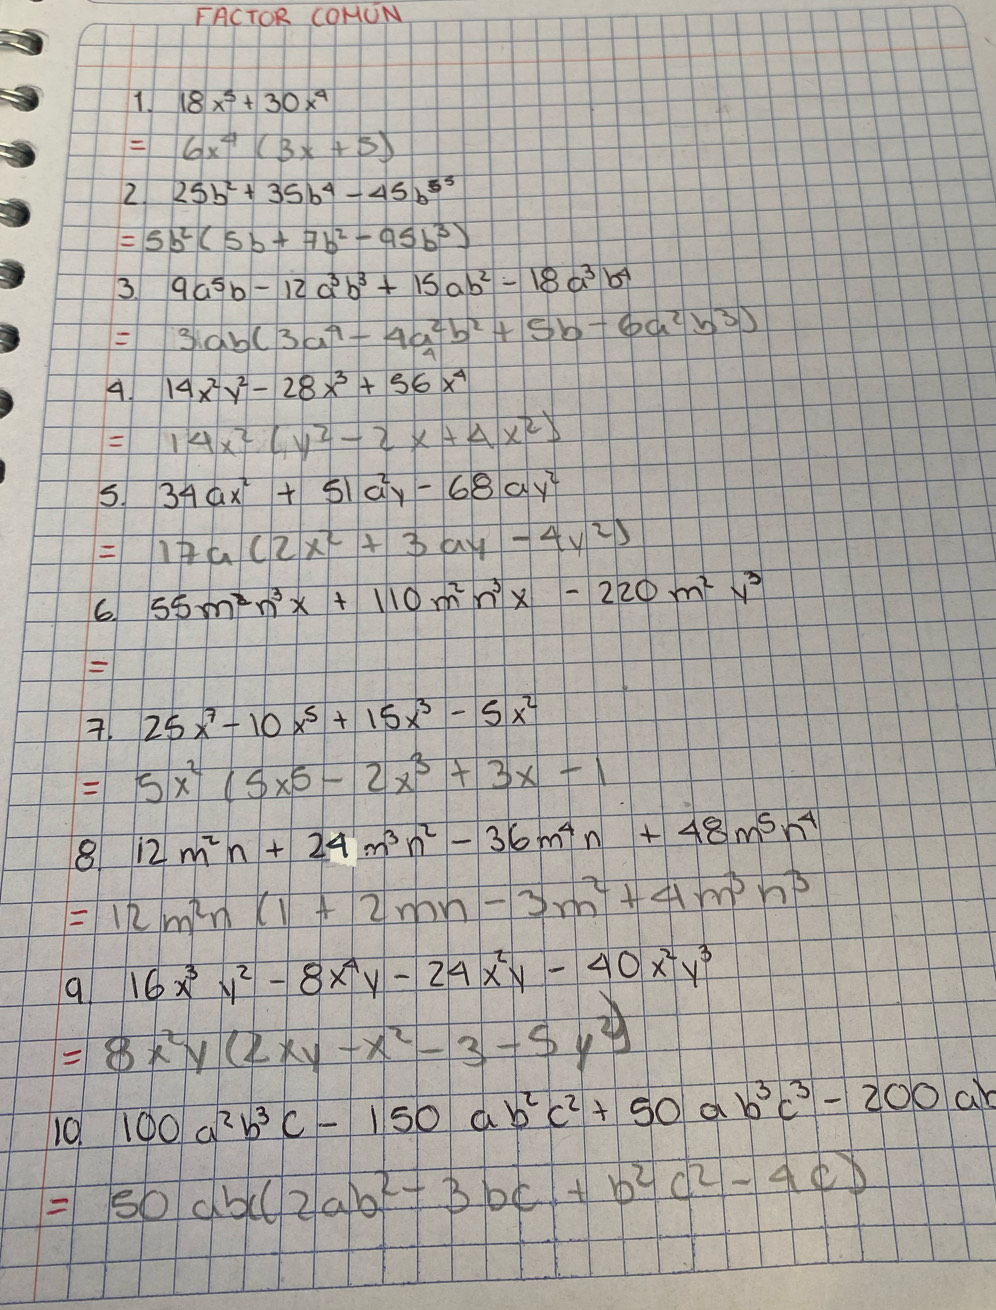 FACTOR COMÚN
1. 18x⁵ + 30x⁴
= 6x⁴ (3x + 5)
2. 25b² + 35b⁴ - 45b⁵⁵
= 5b² (5b + 7b² - 95b³)
3. 9a⁵b - 12a³b³ + 15ab² - 18a³b⁴
= 3ab (3a⁴ - 4a²b² + 5b - 6a²b³)
4. 14x²y² - 28x³ + 56x⁴
= 14x² (y² - 2x + 4x²)
5. 34ax² + 51a²y - 68ay²
= 17a (2x² + 3ay - 4y²)
6. 55m²n³x + 110m²n³x - 220m²y³
=
7. 25x⁷ - 10x⁵ + 15x³ - 5x²
= 5x² (5x5 - 2x³ + 3x - 1
8. 12m²n + 24m³n² - 36m⁴n + 48m⁵n⁴
= 12m²n (1 + 2mn - 3m² + 4m³n³
9. 16x³y² - 8x⁴y - 24x²y - 40x²y³
= 8x²y (2xy - x² - 3 - 5y²)
10. 100a²b³c - 150ab²c² + 50ab³c³ - 200ab
= 50abc(2ab² - 3bc + b²c² - 4c)